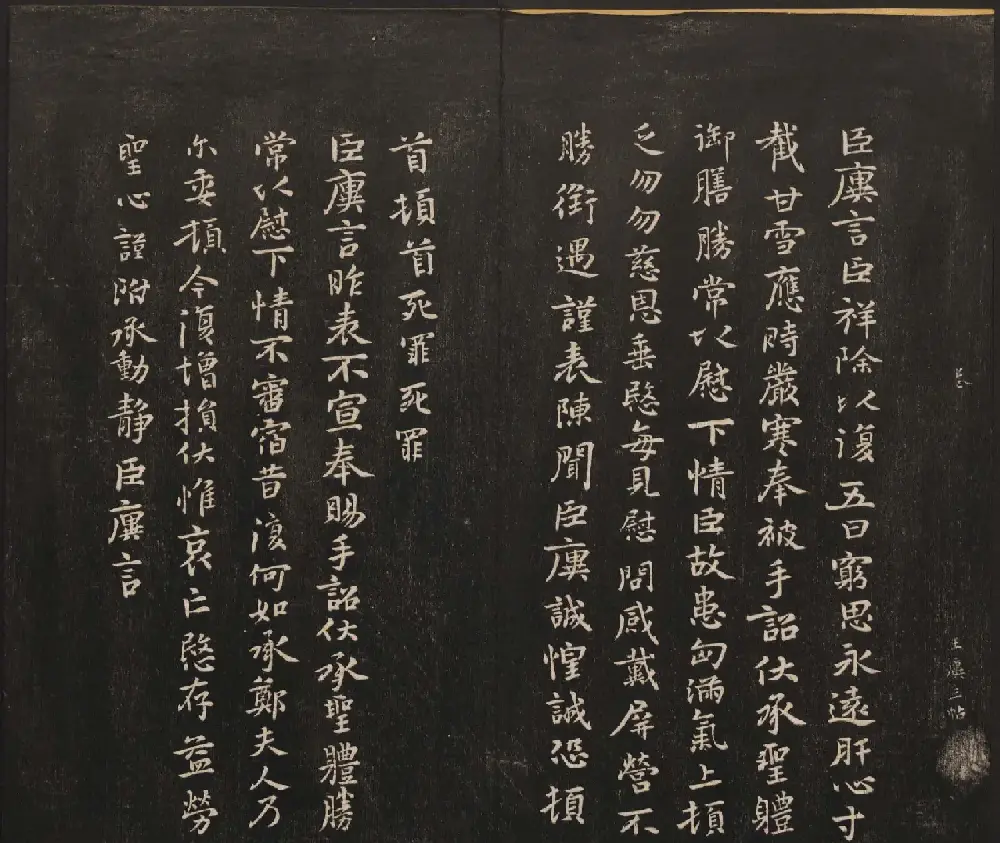 臣廙言臣祥除以復五日窮思永遠肝心寸
截甘雪應時嚴寒奉被手詔伏承聖體
御膳勝常以慰下情臣故患匈滿氣上頓
乏勿勿慈恩垂愍每見慰問感戴屏營不
勝銜遇謹表陳聞臣廙誠惶誠恐頓
首頓首死罪死罪
臣廙言昨表不宣奉賜手詔伏承聖體勝
常以慰下情不審宿昔復何如承鄭夫人乃
尒委頓今復增損伏惟哀亡愍存益勞
聖心謹附承動靜臣廙言
王廙三帖